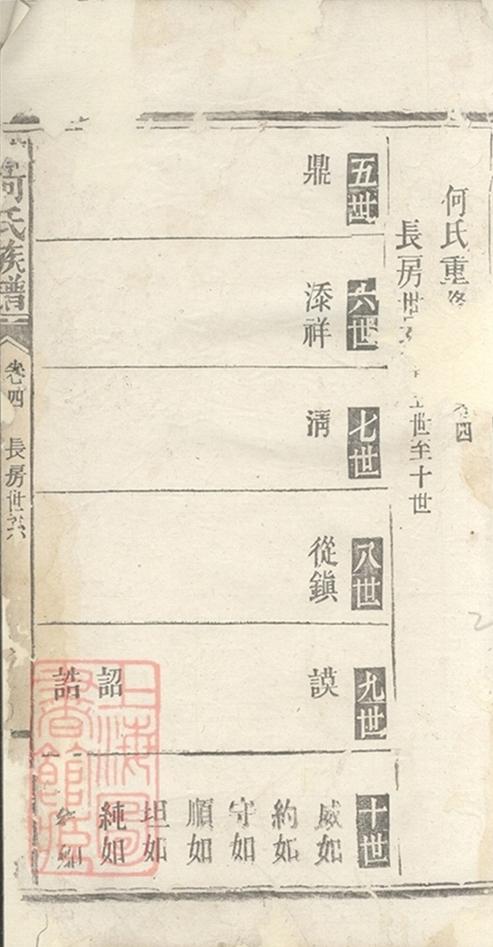 何氏重修 卷四
長房世系 五世至十世
五世
鼎
六世
添祥
七世
淸
八世
從鎭
九世
謨
詔
誥
十世
威如
約如
守如
順如
坦如
純如
如
何氏族譜
卷四
長房世系
上海圖書館藏